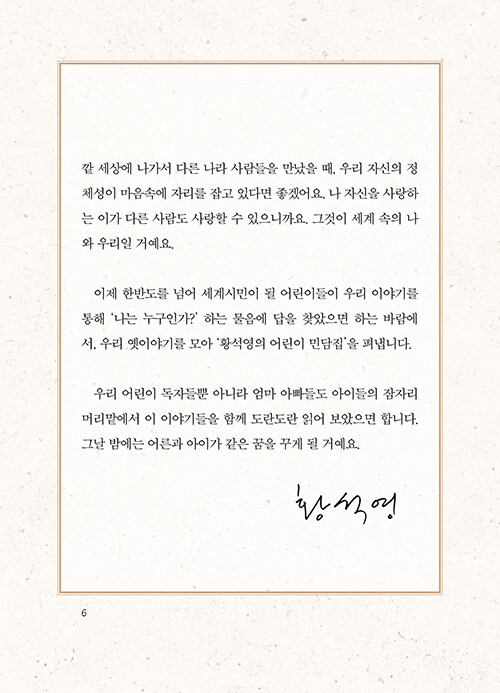 깥 세상에 나가서 다른 나라 사람들을 만났을 때, 우리 자신의 정
체성이 마음속에 자리를 잡고 있다면 좋겠어요. 나 자신을 사랑하
는 이가 다른 사람도 사랑할 수 있으니까요. 그것이 세계 속의 나
와 우리일 거예요.
이제 한반도를 넘어 세계시민이 될 어린이들이 우리 이야기를
통해 ‘나는 누구인가?’ 하는 물음에 답을 찾았으면 하는 바람에
서, 우리 옛이야기를 모아 ‘황석영의 어린이 민담집’을 펴냅니다.
우리 어린이 독자들뿐 아니라 엄마 아빠들도 아이들의 잠자리
머리맡에서 이 이야기들을 함께 도란도란 읽어 보았으면 합니다.
그날 밤에는 어른과 아이가 같은 꿈을 꾸게 될 거예요.
황석영
6